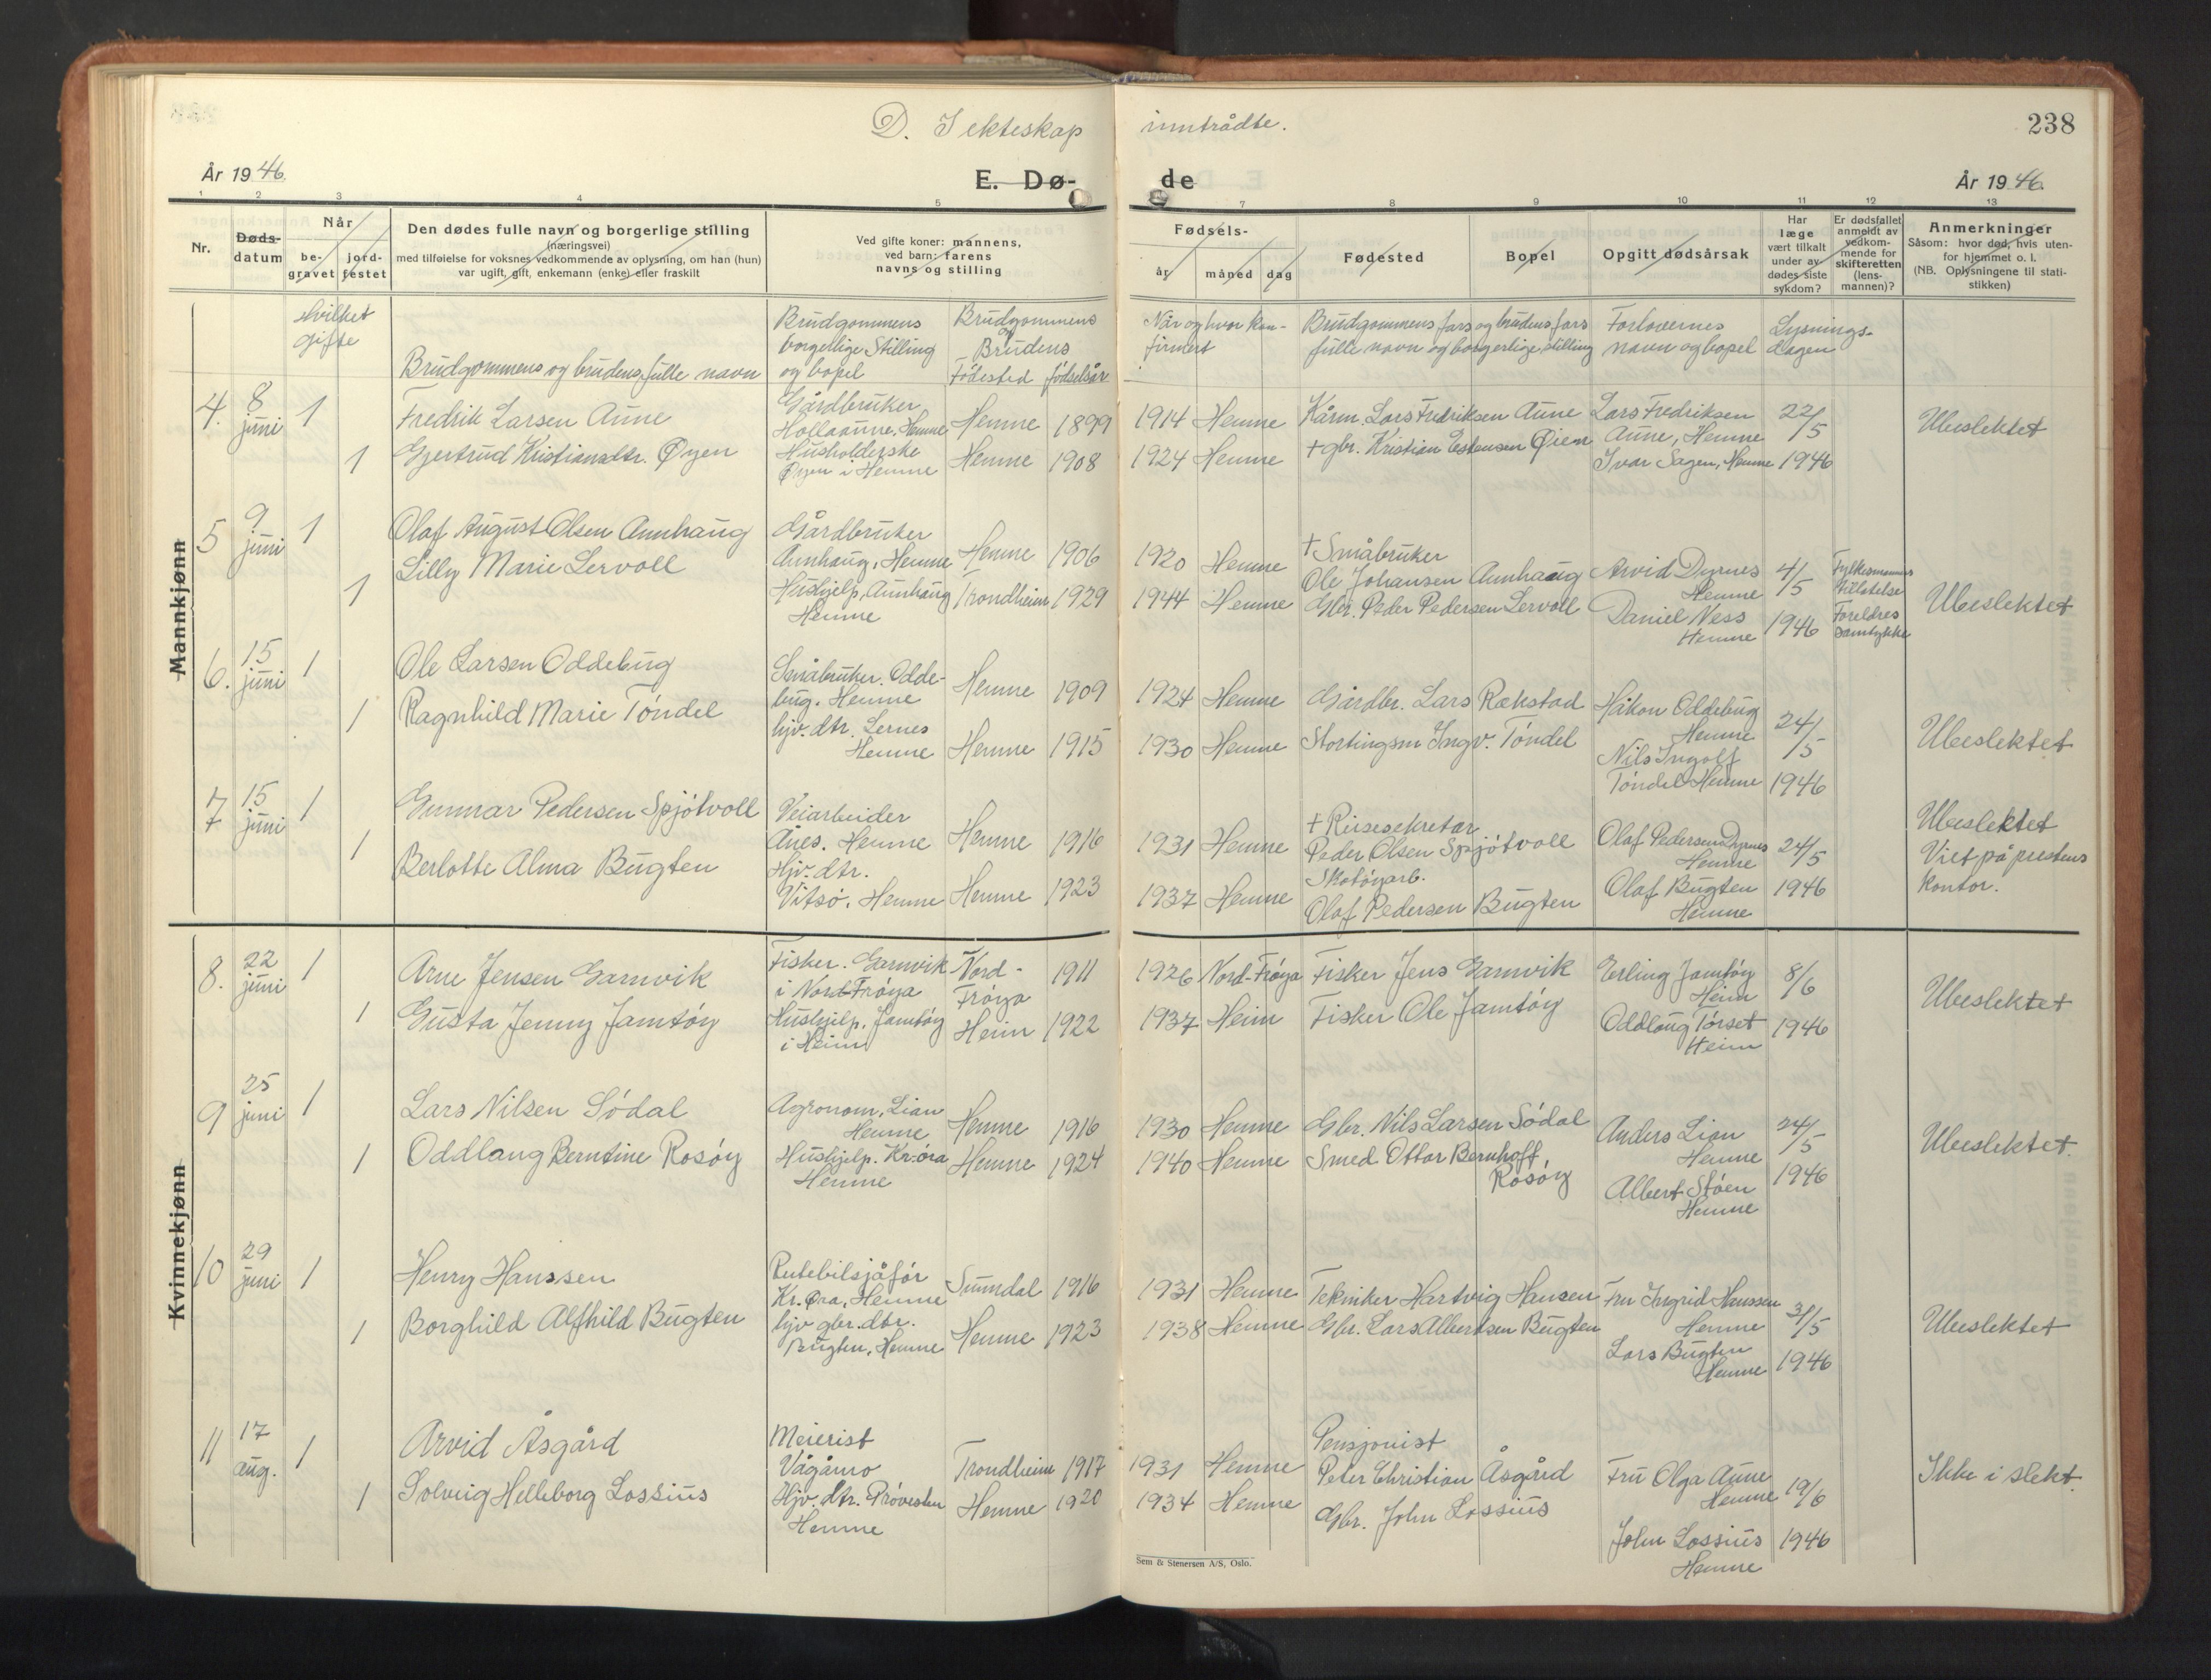 D. I ekteskap inntrådte.
238
År 1946.
E. Dø-de
År 1946.
1 2 3 4 5 7 8 9 10 11 12 13
Nr.
Døds-datum
Når
be-gravet
jord-festet
Den dødes fulle navn og borgerlige stilling
(næringsvei)
med tilføielse for voksnes vedkommende av oplysning, om han (hun)
var ugift, gift, enkemann (enke) eller fraskilt
Ved gifte koner: mannens,
ved barn: farens
navns og stilling
Fødsels-
år måned dag
Fødested
Bopel
Opgitt dødsårsak
Har
læge
vært tilkalt
under av
dødes siste
sykdom?
Er dødsfallet
anmeldt av
vedkom-
mende for
skifteretten
(lens-
mannen)?
Anmerkninger
Såsom: hvor død, hvis uten-
for hjemmet o. l.
(NB. Oplysningene til stati-
stikken)
Hvilket
gifte
Brudgommens og brudens fulle navn
Brudgommens
borgerlige Stilling
og bopel
Brudgommens
og
Brudens
Fødested fødselsår
Når og hvor kon-
firmert
Brudgommens fars og brudens fars
fulle navn og borgerlige stilling
Forlovernes
navn og bopel
Lysnings-
dagen
Mannkjønn
4. 8 juni 1 Fredrik Larsen Aune
Gårdbruker
Hollaaune, Hemne
Hemne 1899
1914 Hemne
Kårm. Lars Fredriksen Aune
Lars Fredriksen
Aune, Hemne
22/5
Ubeslektet
1 Gjertrud Kristiansdtr. Øyen
Husholderske
Øyen i Hemne
Hemne 1908
1924 Hemne
+gbr. Kristian Estensen Øien
Ivar Sagen, Hemne
1946
5 9 juni 1 Olaf August Olsen Aunhaug
Gårdbruker
Aunhaug, Hemne
Hemne 1906
1920 Hemne
+ Småbruker
Ole Johansen Aunhaug
Arvid Dyrnes
Hemne
4/5
Fylkesmannens
tillatelse
1 Lilly Marie Lervoll
Hushjelp, Aunhaug
Hemne
Trondheim 1929
1944 Hemne
Gbr. Peder Pedersen Lervoll
Daniel Ness
Hemne
1946
Foreldres
samtykke
Ubeslektet
6. 15 juni 1 Ole Larsen Oddebug
Småbruker. Odde-
bug. Hemne
Hemne 1909
1924 Hemne
Gårdbr. Lars Rekstad
Håkon Oddebug
Hemne
24/5
Ubeslektet
1 Ragnhild Marie Tøndel
hjv. dtr. Lernes
Hemne
Hemne 1915
1930 Hemne
Stortingsm Ingv. Tøndel
Nils Ingolf
Tøndel Hemne
1946
7 15 juni 1 Gunnar Pedersen Spjøtvoll
Veiarbeider
Ånes. Hemne
Hemne 1916
1931 Hemne
+ Reisesekretær
Peder Olsen Spjøtvoll
Olaf Pedersen Dyrnes
Hemne
24/5
Ubeslektet
Viet på prestens
kontor.
1 Berlotte Alma Bugten
Hjv. dtr.
Vitsø. Hemne
Hemne 1923
1937 Hemne
Skotøyarb.
Olaf Pedersen Bugten
Olaf Bugten
Hemne
1946
Kvinnekjønn
8. 22 juni 1 Arne Jensen Garnvik
Fisker. Garnvik
i Nord-Frøya
Nord-
Frøya
1911
1926 Nord-Frøya
Fisker Jens Garnvik
Erling Jamtøy
Heim
8/6
Ubeslektet
1 Gusta Jenny Jamtøy
Hushjelp. Jamtøy
i Heim
Heim 1922
1937 Heim
Fisker Ole Jamtøy
Oddlaug Tørset
Heim
1946
9 25 juni 1 Lars Nilsen Sødal
Agronom, Lian
Hemne
Hemne 1916
1930 Hemne
Gbr. Nils Larsen Sødal
Anders Lian
Hemne
24/5
Ubeslektet.
1 Oddlaug Berntine Rosøy
Hushjelp. Kr.øra
Hemne
Hemne 1924
1940 Hemne
Smed Ottar Bernhoff.
Rosøy
Albert Støen
Hemne
1946
10 29 juni 1 Henry Hanssen
Rutebilsjåfør
Kr. Øra, Hemne
Sunndal 1916
1931 Hemne
Tekniker Hartvig Hansen
Fru Ingrid Hanssen
Hemne
31/5
Ubeslektet
1 Borghild Alfhild Bugten
hjv gbr. dtr.
Bugten, Hemne
Hemne 1923
1938 Hemne
Gbr. Lars Albertsen Bugten
Lars Bugten
Hemne
1946
11 17 aug. 1 Arvid Åsgård
Meierist
Vågåmo
Trondheim 1917
1931 Hemne
Pensjonist
Peter Christian Åsgård
Fru Olga Aune
Hemne
19/6
Ikke i slekt.
1 Solveig Helleborg Lossius
Hjv. dtr. Prøvesten
Hemne
Hemne 1920
1934 Hemne
Gbr. John Lossius
John Lossius
Hemne
1946
Sem & Stenersen A/S, Oslo.